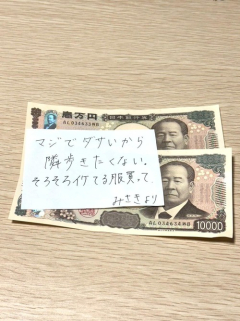 壱万円
日本銀行券
AL034635MB
マジでダサいから
隣歩きたくない。
そろそろイケてる服買って
みさきより
AL034634MB
10000